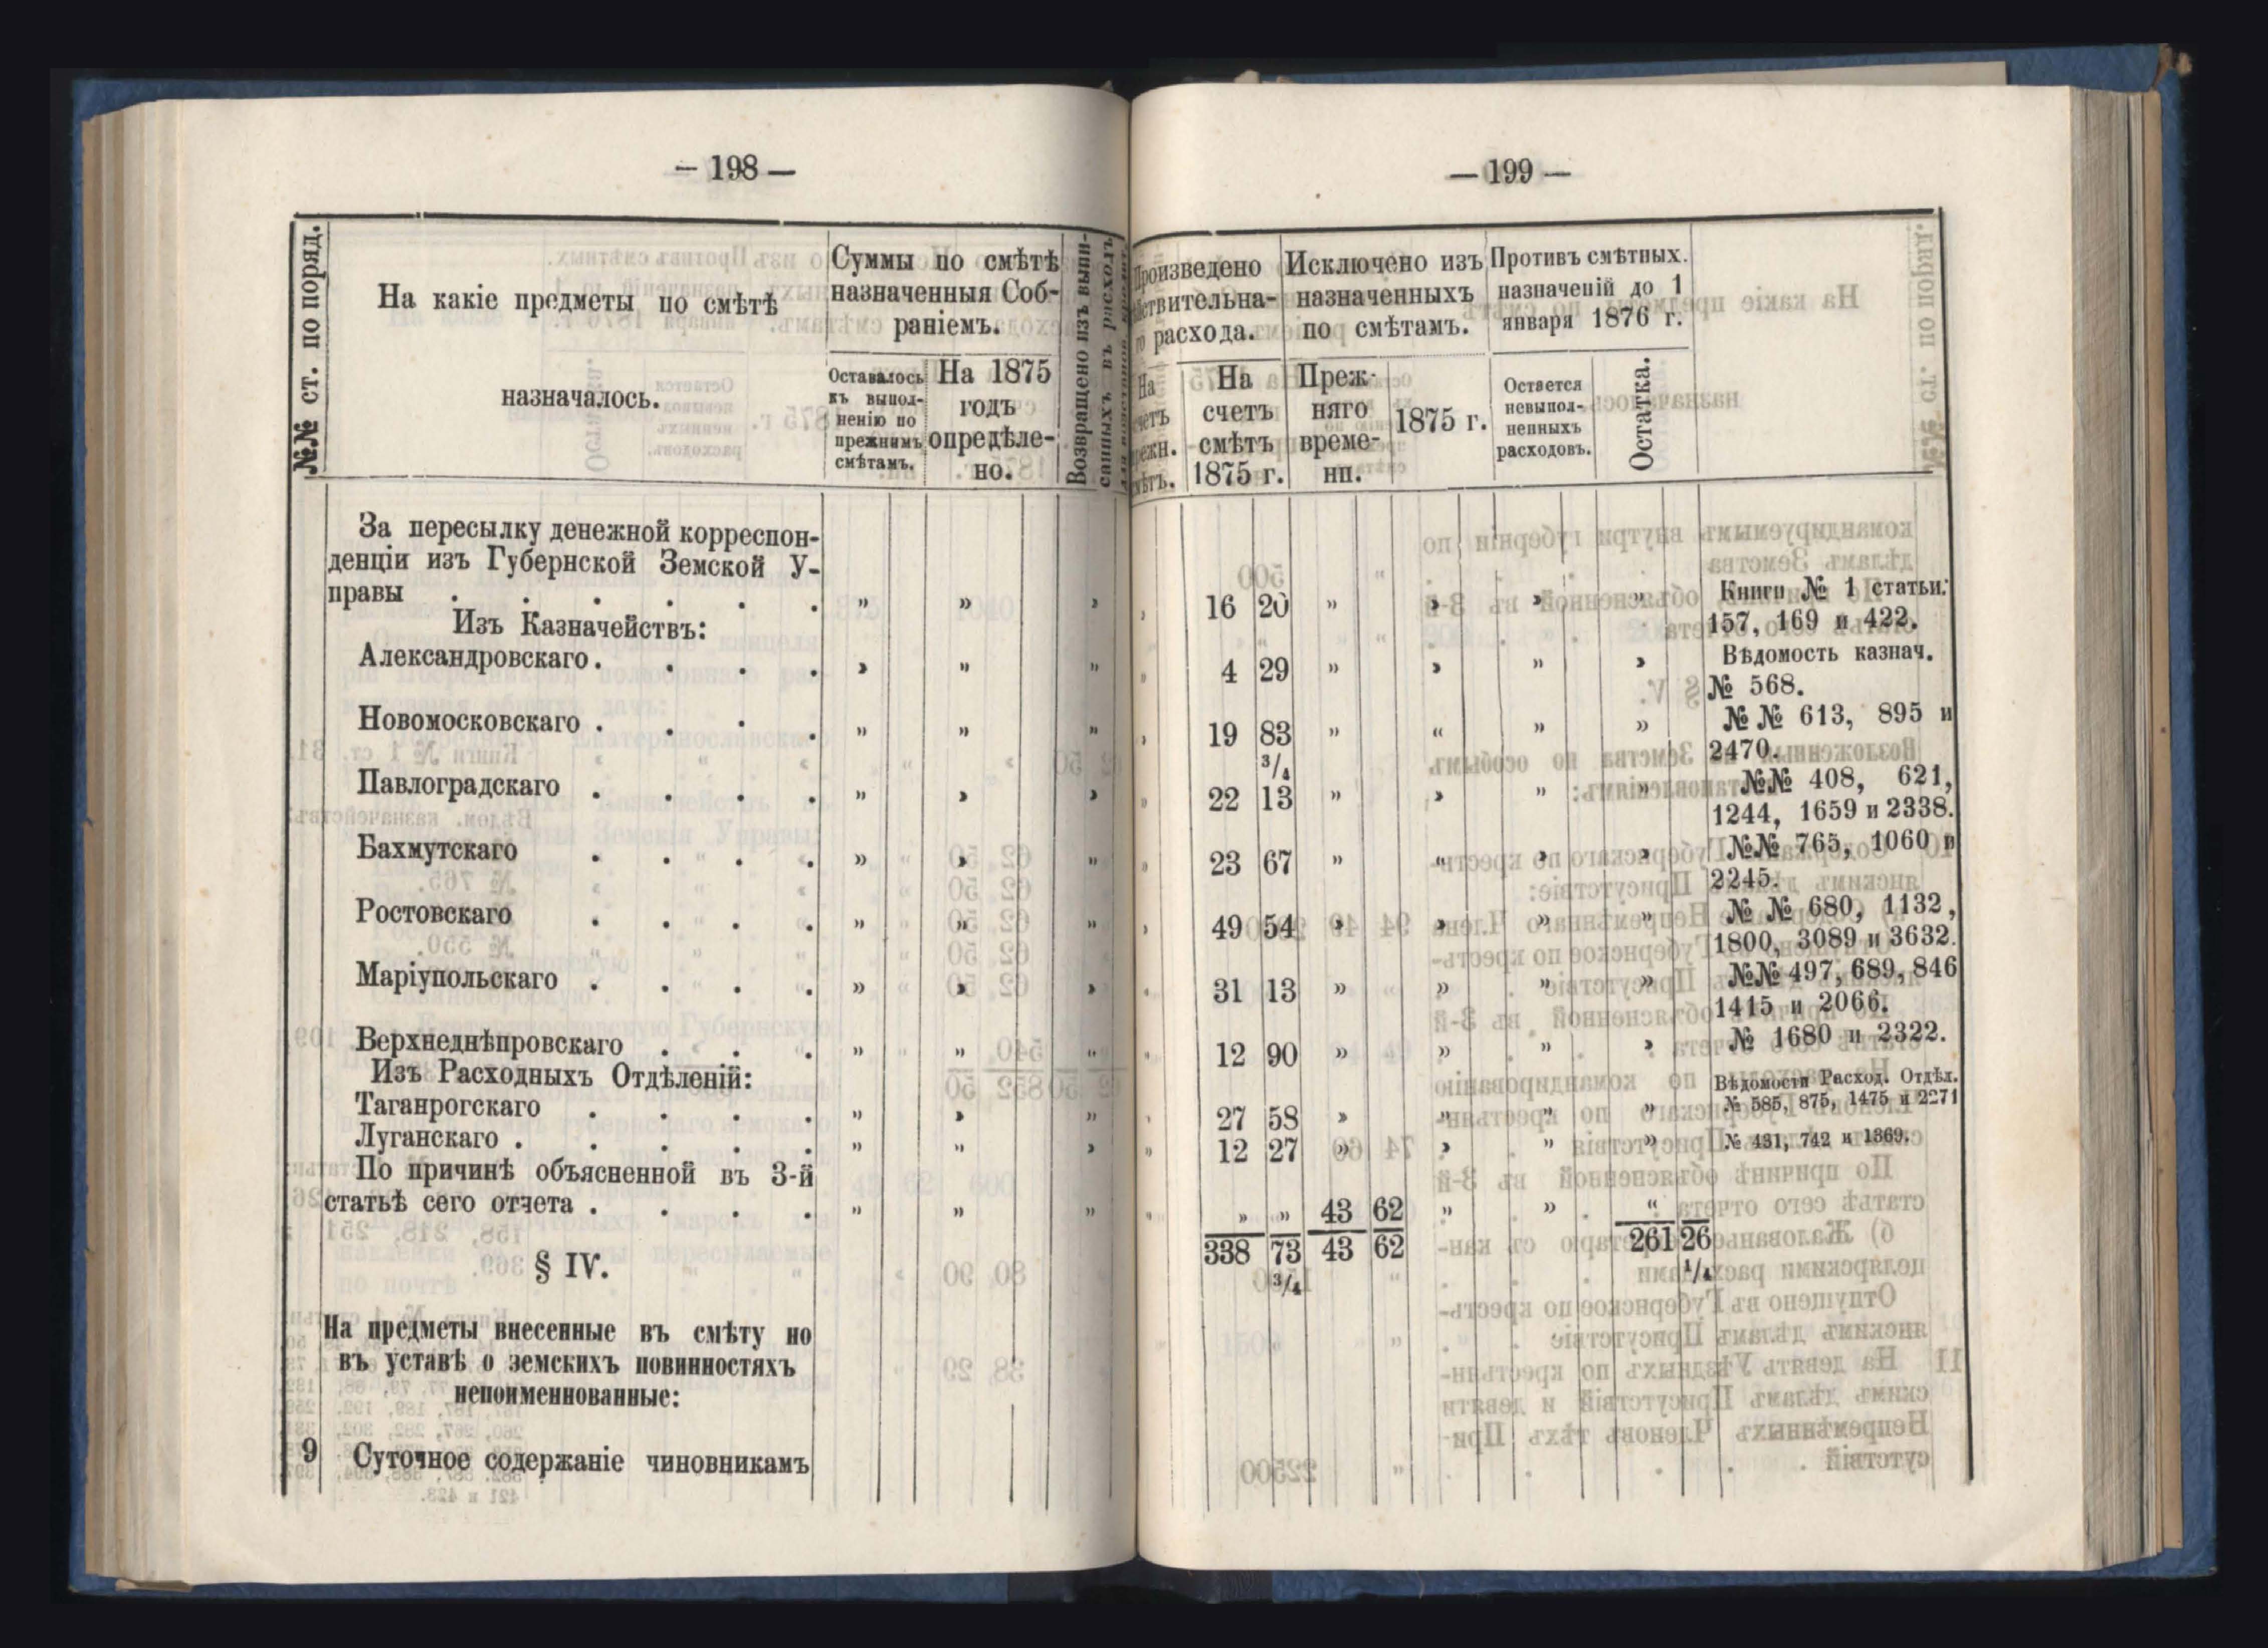 — 198 —
№№ ст. по поряд.
На какіе предметы по смѣтѣ
назначалось.
Суммы по смѣтѣ
назначенныя Соб-
раніемъ.
Оставалось
къ выпол-
ненію по
прежнимъ
смѣтамъ.
На 1875
годъ
опредѣле-
но.
Возвращено изъ выпи-
санныхъ въ расходъ
За пересылку денежной корреспон-
денціи изъ Губернской Земской У-
правы . . . . . . „ „ ,
Изъ Казначействъ:
Александровскаго . . . . , „ „
Новомосковскаго . . . . „ „ „
Павлоградскаго . . . . „ , ,
Бахмутскаго . . . . „ , „
Ростовскаго . . . . „ „ „
Маріупольскаго . . . . „ , ,
Верхнеднѣпровскаго . . . „ „ „
Изъ Расходныхъ Отдѣленій:
Таганрогскаго . . . . „ , „
Луганскаго . . . . . „ „ ,
По причинѣ объясненной въ 3-й
статьѣ сего отчета . . . . „ „ „
§ IV.
На предметы внесенные въ смѣту но
въ уставѣ о земскихъ повинностяхъ
непоименнованные:
9 Суточное содержаніе чиновникамъ
— 199 —
Произведено
расхода.
На
счетъ
смѣтъ
1875 г.
Исключено изъ
назначенныхъ
по смѣтамъ.
Преж-
няго
време-
ни.
1875 г.
Противъ смѣтныхъ
назначеній до 1
января 1876 г.
Остается
невыпол-
ненныхъ
расходовъ.
Остатка.
, 16 20 „ , , „ Книги № 1 статьи:
157, 169 и 422.
„ 4 29 „ , „ , Вѣдомость казнач.
№ 568.
, 19 83 „ “ „ „ № № 613, 895 и
3/4 2470.
„ 22 13 „ , „ „ №№ 408, 621,
1244, 1659 и 2338.
„ 23 67 „ “ , , №№ 765, 1060 и
2245.
, 49 54 , , „ „ № № 680, 1132,
1800, 3089 и 3632.
„ 31 13 „ „ „ „ №№ 497, 689, 846
1415 и 2066.
„ 12 90 „ „ „ , № 1680 и 2322.
Вѣдомости Расход. Отдѣл.
, 27 58 , „ „ „ № 585, 875, 1475 и 2271
„ 12 27 „ , „ „ № 431, 742 и 1369.
„ „ „ 43 62 „ „ “
338 73 43 62 261 26
3/4 1/4